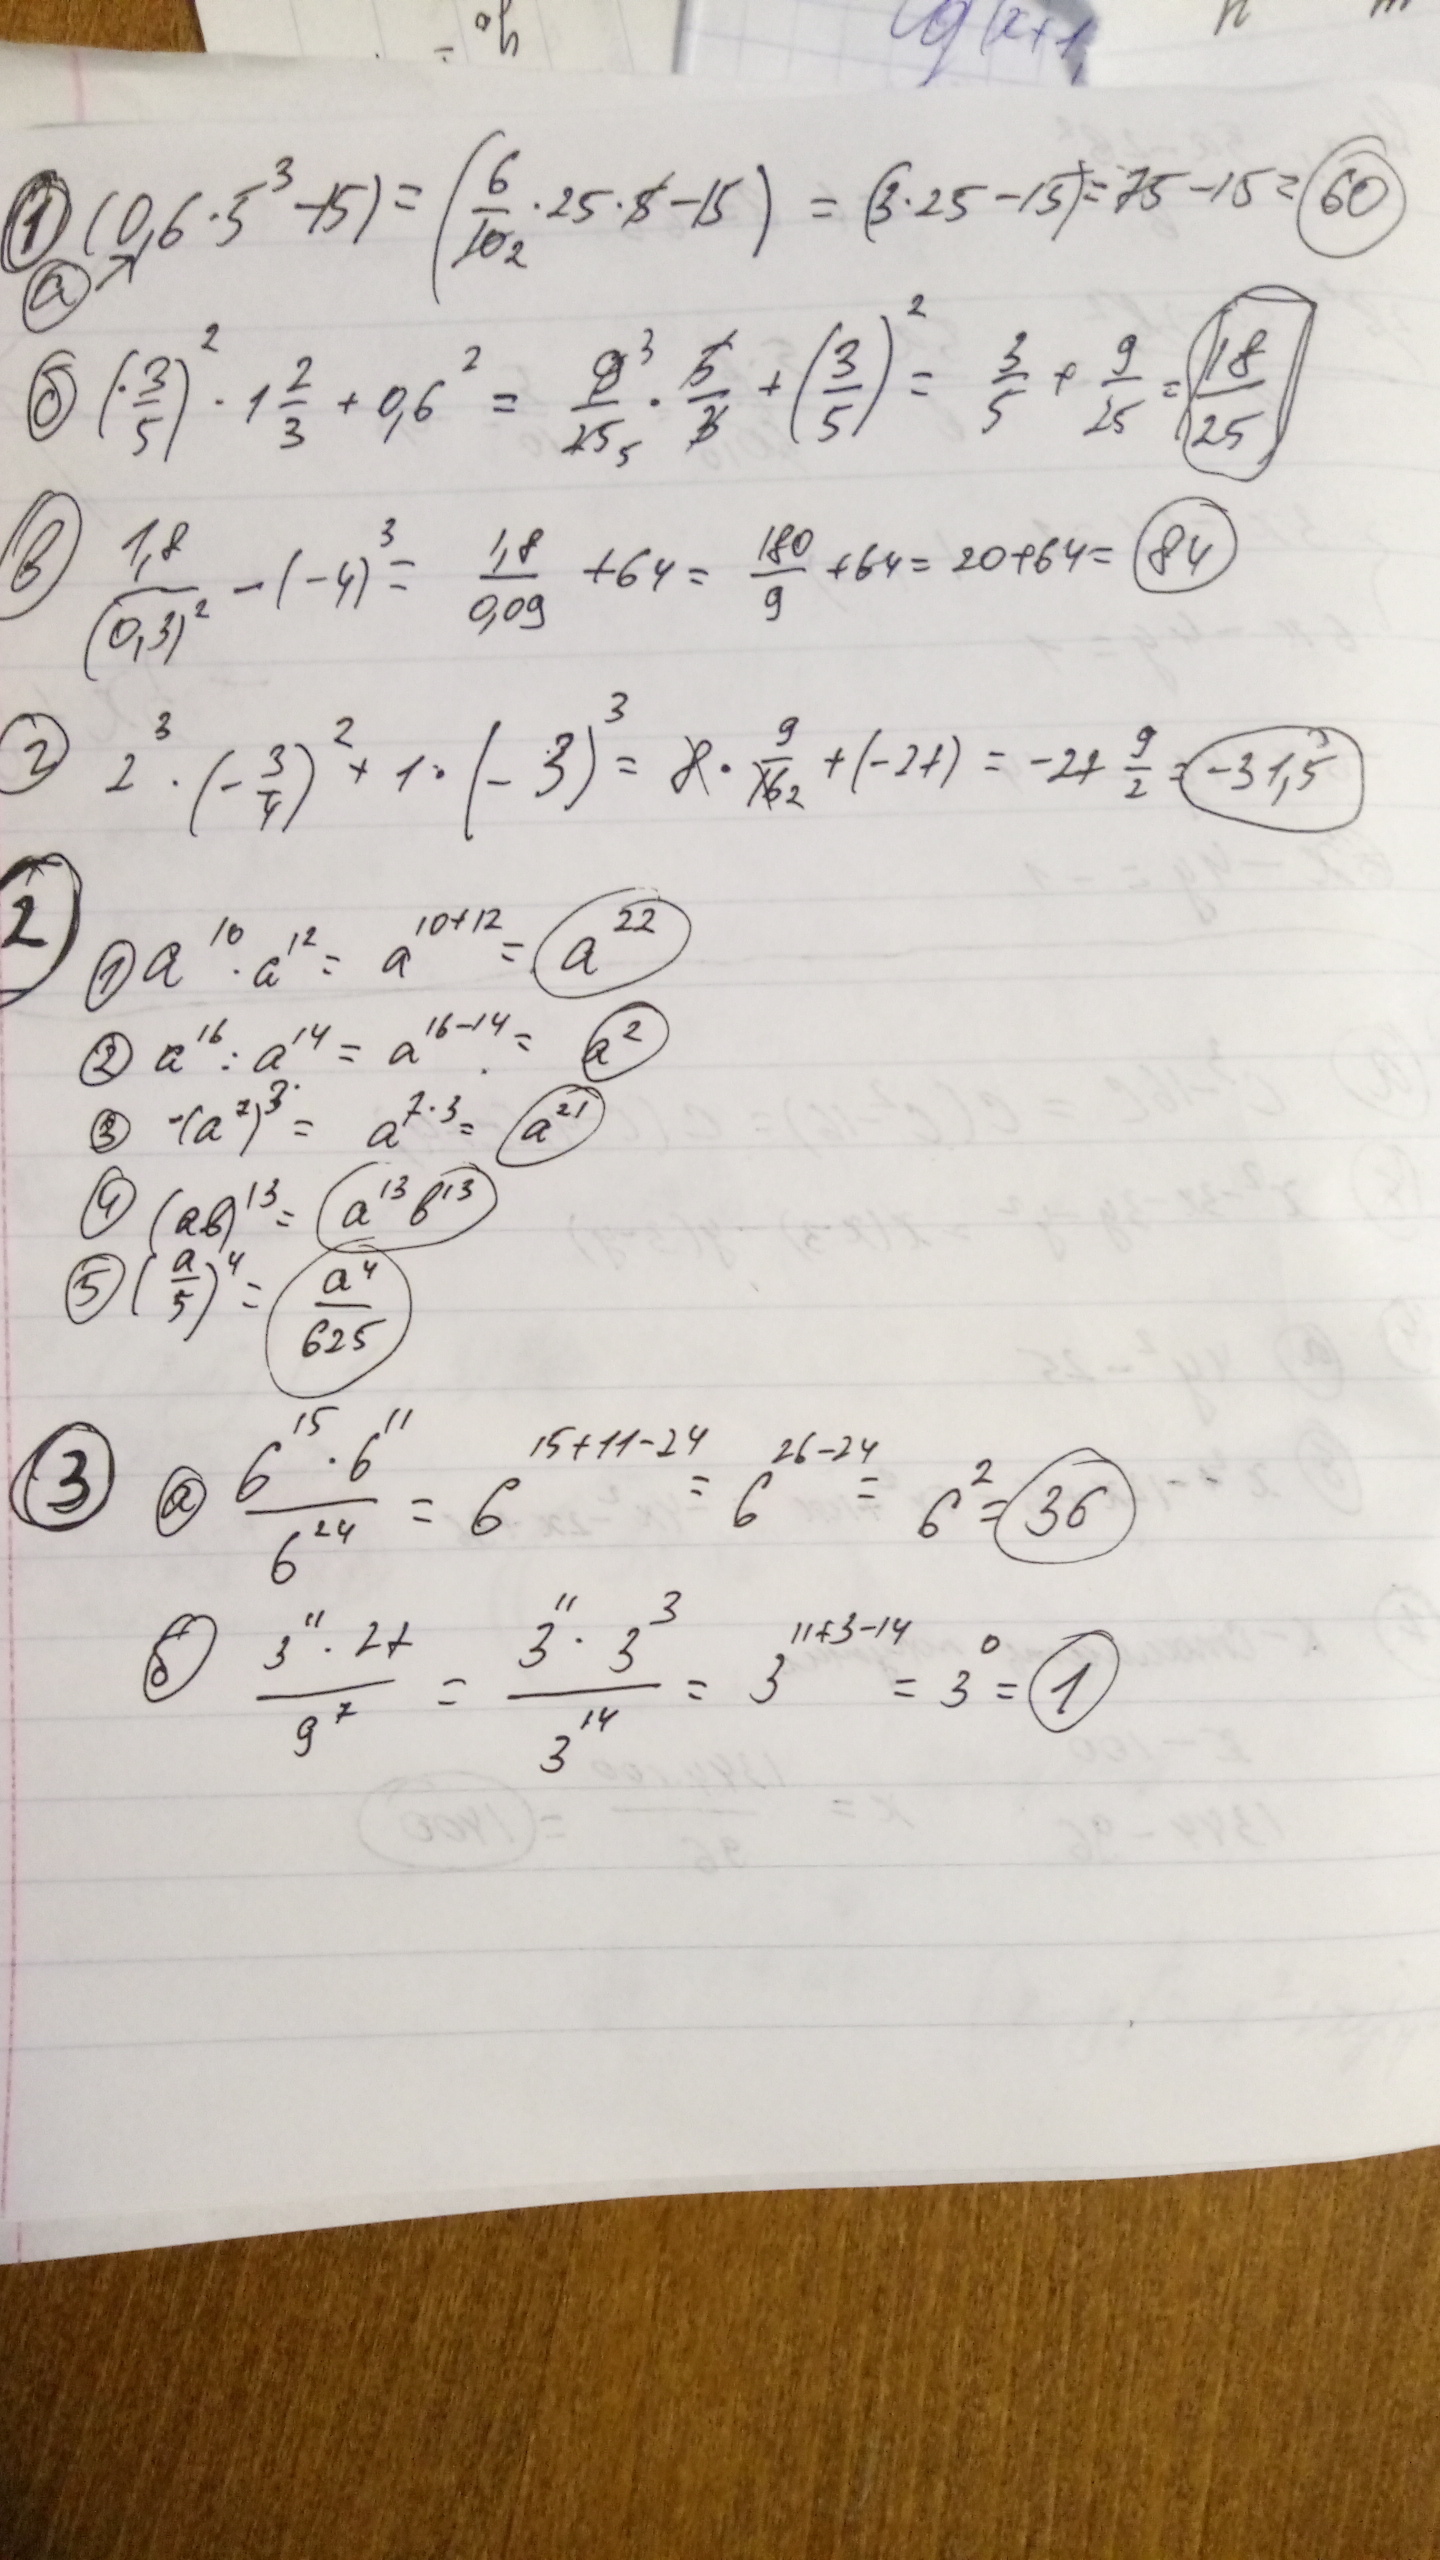 lg(x+1,
n m
① (0,6·5³-15) = (6/10₂ · 25·5-15) = (3·25-15) = 75-15 = 60
а
б (3/5)² · 1 2/3 + 0,6² = 9³/25₅ · 5/3 + (3/5)² = 3/5 + 9/25 = 18/25
в 1,8/(0,3)² - (-4)³ = 1,8/0,09 + 64 = 180/9 + 64 = 20+64 = 84
г 2³ · (-3/4)² + 1 · (-3)³ = 8 · 9/16₂ + (-27) = -27 9/2 = -31,5
2
① a¹⁰ · a¹² = a¹⁰⁺¹² = a²²
② a¹⁶ : a¹⁴ = a¹⁶⁻¹⁴ = a²
③ -(a⁷)³ = a⁷·³ = a²¹
④ (ab)¹³ = a¹³b¹³
⑤ (a/5)⁴ = a⁴/625
③ а 6¹⁵·6¹¹/6²⁴ = 6¹⁵⁺¹¹⁻²⁴ = 6²⁶⁻²⁴ = 6² = 36
б 3¹¹·27/9⁷ = 3¹¹·3³/3¹⁴ = 3¹¹⁺³⁻¹⁴ = 3⁰ = 1